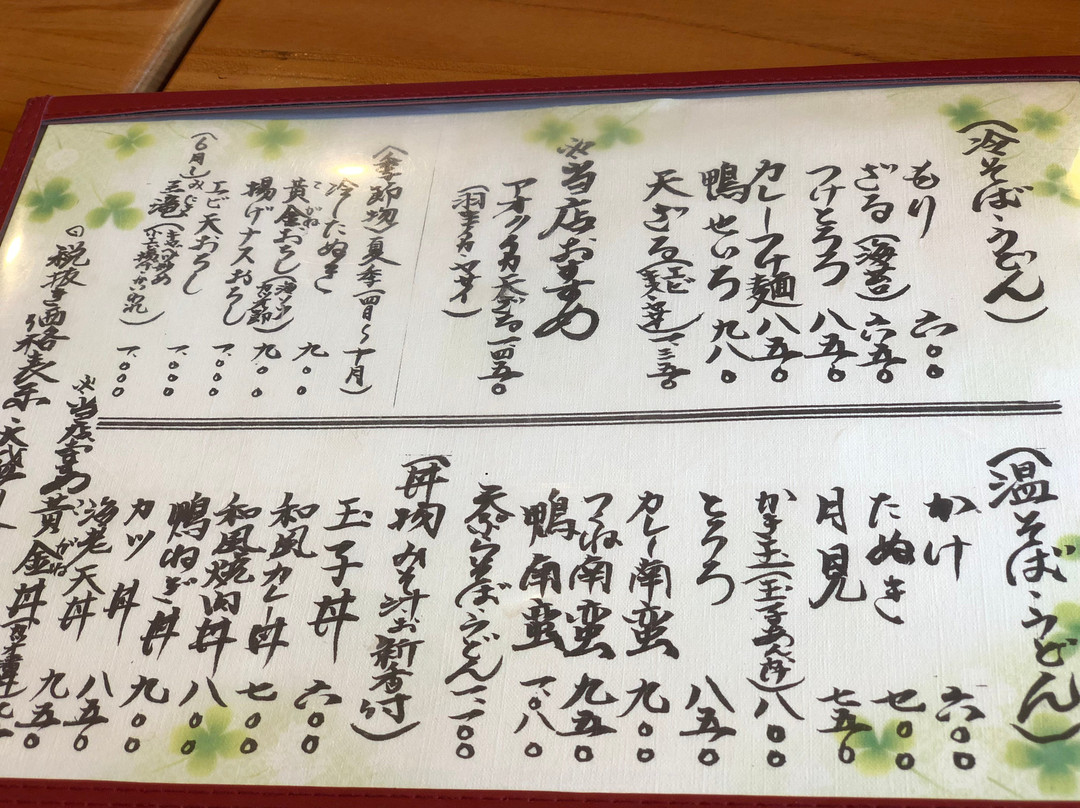 (冷そば・うどん)
もり 六〇〇
ざる(海苔) 六五〇
つけとろろ 八五〇
カレーつけ麺 八五〇
鴨せいろ 九八〇
天ざる 一、三五〇
※当店おすすめ
一、四五〇
(季節物)夏季(四月〜十月)
冷したぬき 九〇〇
黄金おろし 九〇〇
こがね
揚げナスおろし 一、〇〇〇
エビ天おろし 一、〇〇〇
一、〇〇〇
(温そば・うどん)
かけ 六〇〇
たぬき 七〇〇
月見 七五〇
かき玉(玉子あんかけ) 八〇〇
とろろ 八五〇
カレー南蛮 九〇〇
つくね南蛮 九五〇
鴨南蛮 一、〇八〇
天ぷらそば・うどん 一、一〇〇
(丼物)みそ汁お新香付
玉子丼 六〇〇
和風カレー丼 七〇〇
和風焼肉丼 八〇〇
鴨ねぎ丼 九〇〇
カツ丼 八五〇
海老天丼 九五〇
※当店
黄金丼
こがね
税抜き価格表示・大盛り